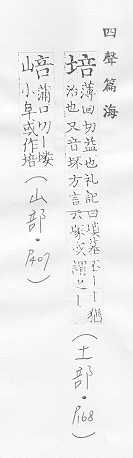 四聲篇海
培
薄回切益也礼記曰墳墓不丨丨猶
治也又音部方言云冢或謂之丨
(土部·P.168)
㟝
蒲口切丨塿
小阜或作培
(山部·P.407)